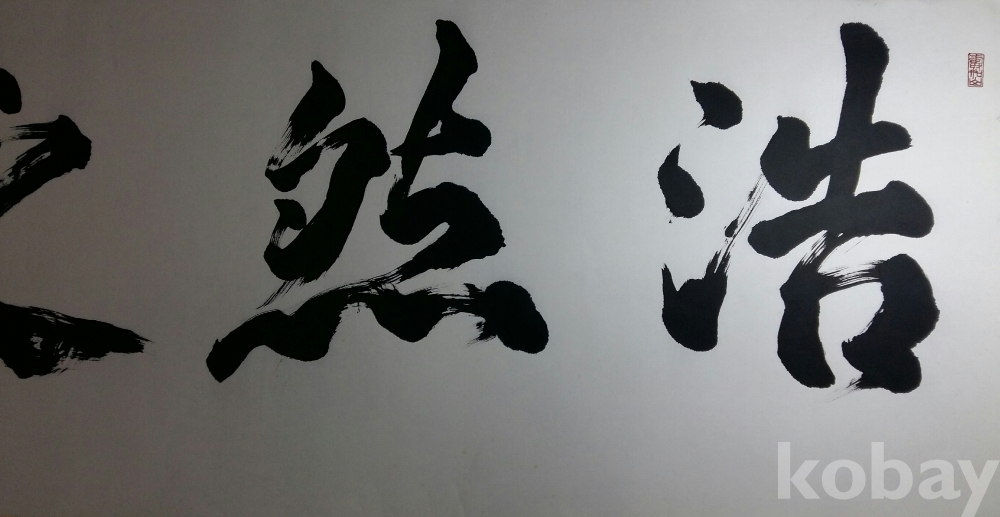 浩然之
kobay